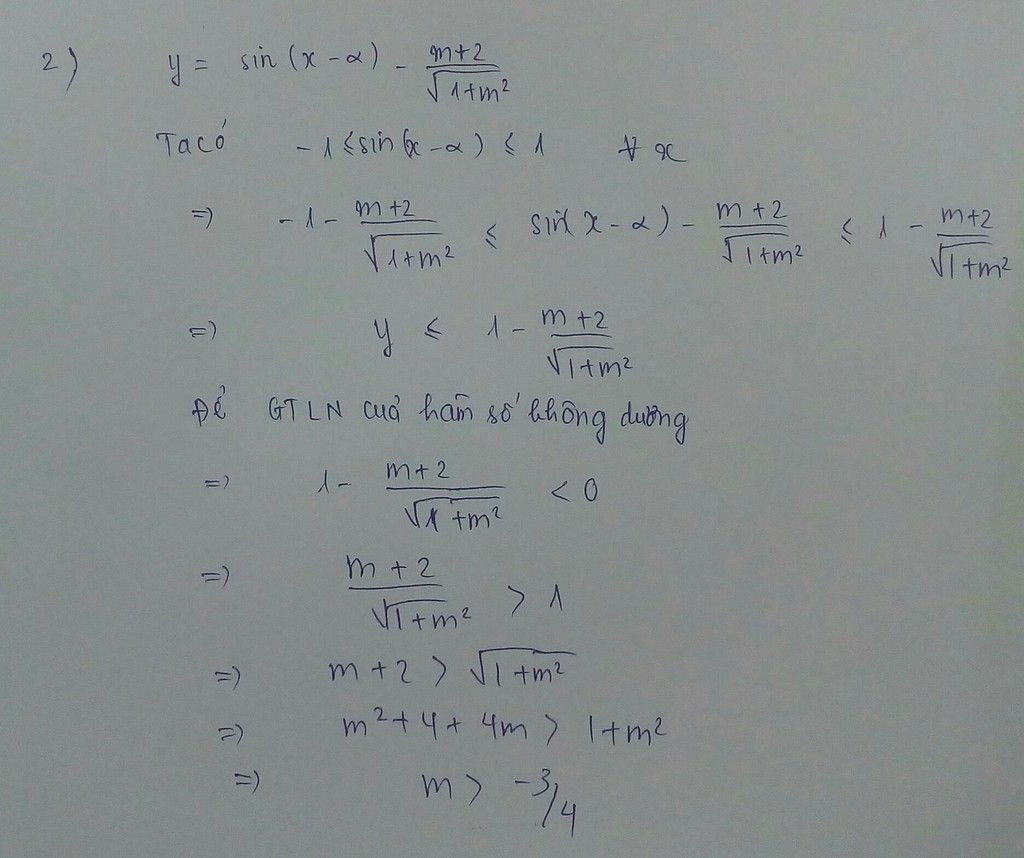 2) y = sin (x - α) - (m+2)/√(1+m²)
Ta có -1 ≤ sin(x - α) ≤ 1 ∀ x
=> -1 - (m+2)/√(1+m²) ≤ sin(x - α) - (m+2)/√(1+m²) ≤ 1 - (m+2)/√(1+m²)
=> y ≤ 1 - (m+2)/√(1+m²)
Để GTLN của hàm số không dương
=> 1 - (m+2)/√(1+m²) < 0
=> (m+2)/√(1+m²) > 1
=> m+2 > √(1+m²)
=> m²+4+4m > 1+m²
=> m > -3/4